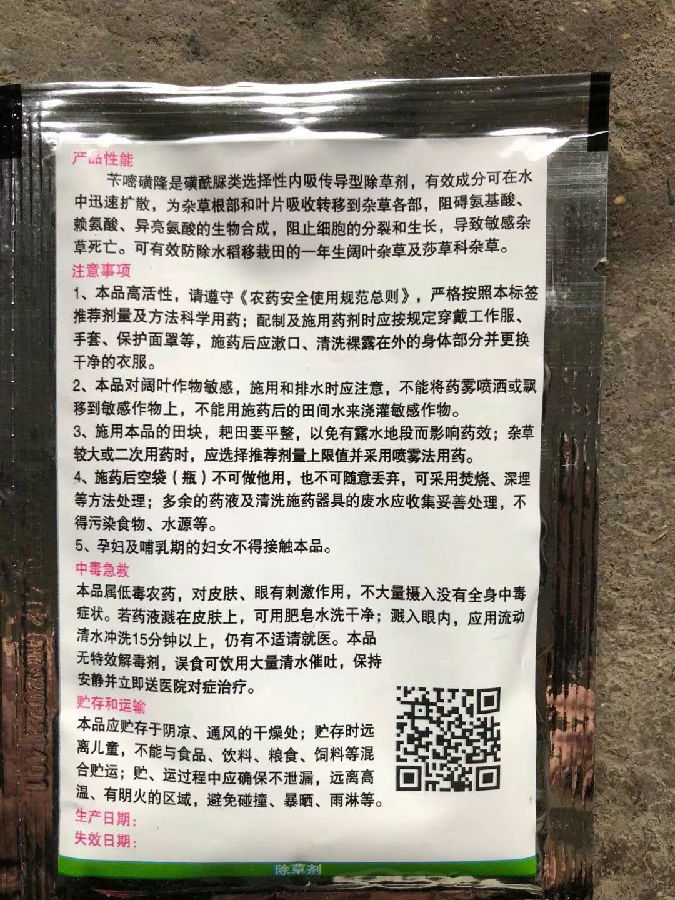 产品性能
苄嘧磺隆是磺酰脲类选择性内吸传导型除草剂，有效成分可在水
中迅速扩散，为杂草根部和叶片吸收转移到杂草各部，阻碍氨基酸、
赖氨酸、异亮氨酸的生物合成，阻止细胞的分裂和生长，导致敏感杂
草死亡。可有效防除水稻移栽田的一年生阔叶杂草及莎草科杂草。
注意事项
1、本品高活性，请遵守《农药安全使用规范总则》，严格按照本标签
推荐剂量及方法科学用药；配制及施用药剂时应按规定穿戴工作服、
手套、保护面罩等，施药后应漱口、清洗裸露在外的身体部分并更换
干净的衣服。
2、本品对阔叶作物敏感，施用和排水时应注意，不能将药雾喷洒或飘
移到敏感作物上，不能用施药后的田间水来浇灌敏感作物。
3、施用本品的田块，耙田要平整，以免有露水地段而影响药效；杂草
较大或二次用药时，应选择推荐剂量上限值并采用喷雾法用药。
4、施药后空袋（瓶）不可做他用，也不可随意丢弃，可采用焚烧、深埋
等方法处理；多余的药液及清洗施药器具的废水应收集妥善处理，不
得污染食物、水源等。
5、孕妇及哺乳期的妇女不得接触本品。
中毒急救
本品属低毒农药，对皮肤、眼有刺激作用，不大量摄入没有全身中毒
症状。若药液溅在皮肤上，可用肥皂水洗干净；溅入眼内，应用流动
清水冲洗15分钟以上，仍有不适请就医。本品
无特效解毒剂，误食可饮用大量清水催吐，保持
安静并立即送医院对症治疗。
贮存和运输
本品应贮存于阴凉、通风的干燥处；贮存时远
离儿童，不能与食品、饮料、粮食、饲料等混
合贮运；贮、运过程中应确保不泄漏，远离高
温、有明火的区域，避免碰撞、暴晒、雨淋等。
生产日期：
失效日期：
除草剂